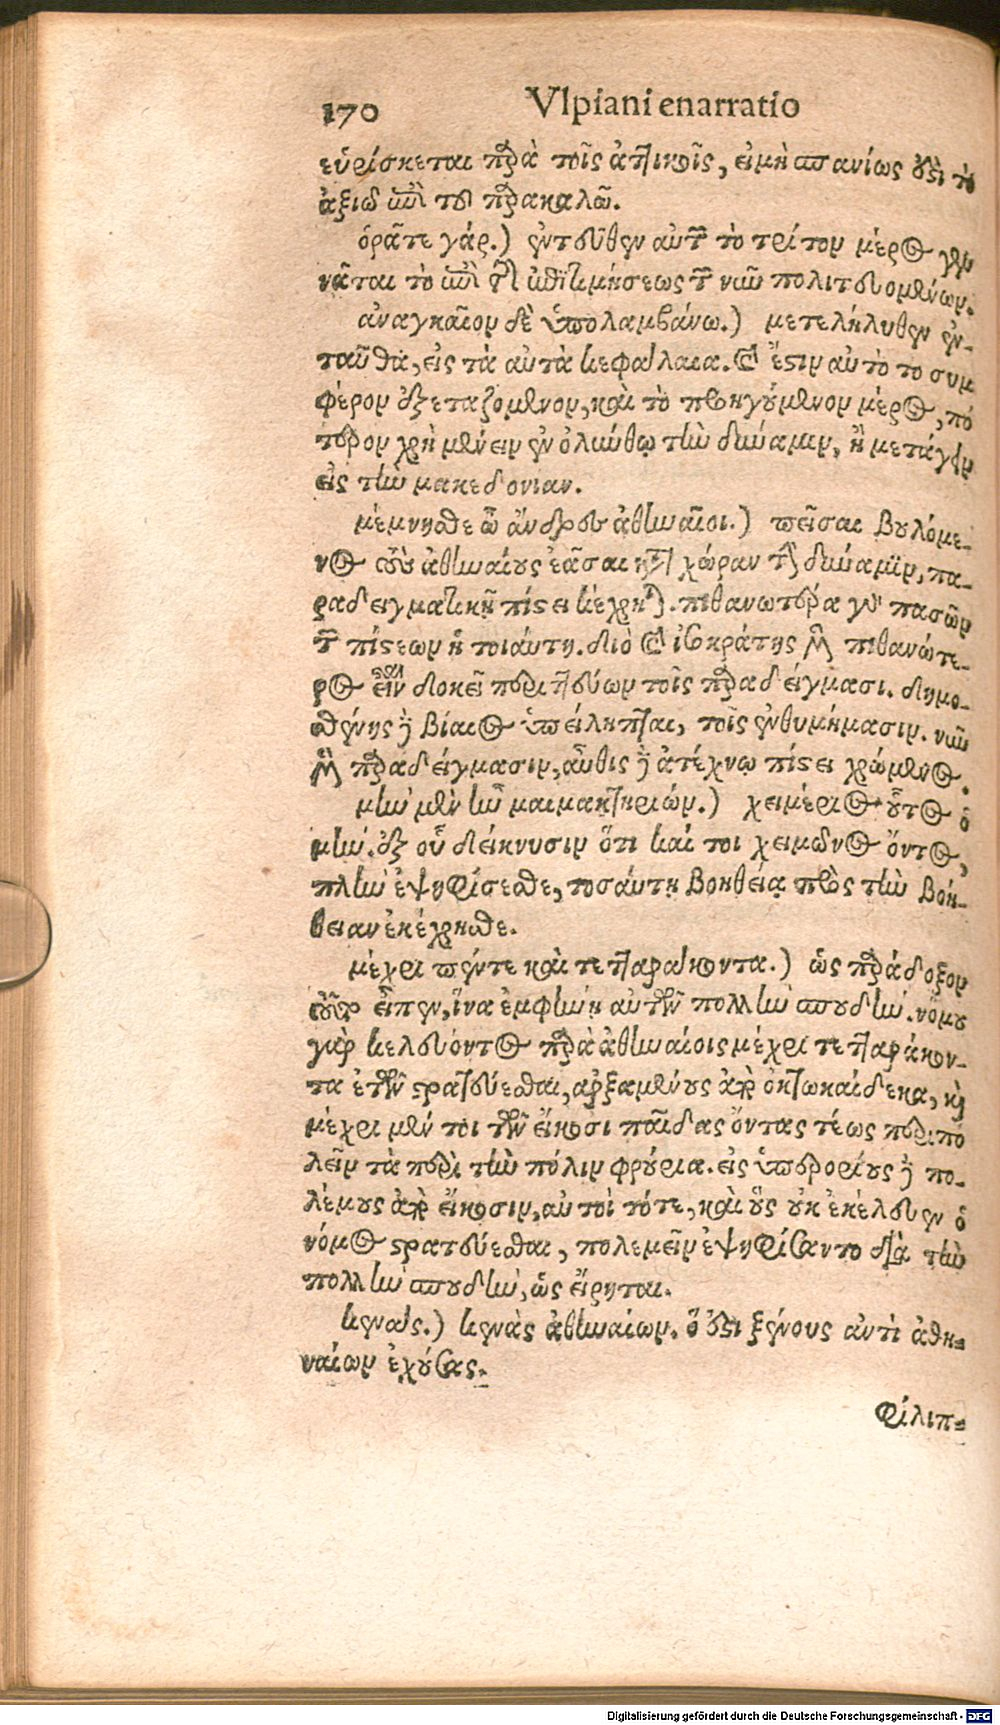 170 Vlpiani enarratio
εὑρίσκεται παρὰ τοῖς ἀττικοῖς, εἰ μὴ σπανίως ἐστὶ τὸ
ἀξιῶ ἀντὶ τοῦ παρακαλῶ.
ὁρᾶτε γάρ.) ἐντεῦθεν αὐτῷ τὸ τρίτον μέρος γεν
νᾶται τὸ ἀντὶ τῆς διατιμήσεως τῶν νῦν πολιτευομένων.
ἀναγκαῖον δὲ ὑπολαμβάνω.) μετελήλυθεν ἐν-
ταῦθα, εἰς τὰ αὐτὰ κεφάλαια. καὶ ἔστιν αὐτὸ το συμ
φέρον ἐξεταζομενον, καὶ τὸ προηγούμενον μέρος, πό
τερον χρὴ μένειν ἐν ὀλύνθῳ τὴν δύναμιν, ἢ μετάγειν
εἰς τὴν μακεδονιαν.
μέμνησθε ὦ ἄνδρες ἀθηναῖοι.) πεῖσαι βουλόμε-
νος τοὺς ἀθηναίους ἐᾶσαι κατὰ χώραν τὴν δύναμιν, πα-
ραδειγματικῇ πίστει κέχρηται. πιθανωτέρα γὰρ πασῶν
τῶν πίστεων ἡ τοιάυτη. διὸ καὶ ἰσοκράτης μὲν πιθανώτε-
ρος εἶναι δοκεῖ περιττεύων τοῖς παραδείγμασι. δημο-
σθένης δὲ βίαιος ὑπείληπται, τοῖς ἐνθυμήμασιν. νῦν
μὲν παραδείγμασιν, αὖθις δὲ ἀτέχνῳ πίστει χρώμενος.
μὴν μὲν ἦν μαιμακτηριών.) χειμέριος οὗτος ὁ
μήν. ἐξ οὗ δείκνυσιν ὅτι καί τοι χειμῶνος ὄντος,
πλὴν ἐψηφίσεσθε, τοσάυτη βοηθείᾳ πρὸς τὴν βοή-
θειαν ἐκέχρησθε.
μέχρι πέντε καὶ τετταράκοντα.) ὡς παράδοξον
εἶπεν, ἵνα ἐμφήνῃ αὐτῶν πολλὴν σπουδήν. νόμου
γὰρ κελεύοντος παρὰ ἀθηναίοις μέχρι τετταράκον-
τα ἐτῶν στρατεύεσθαι, ἀρξαμένους ἀπὸ ὀκτωκαίδεκα, καὶ
μέχρι μέν τοι τῶν εἴκοσι παῖδας ὄντας τέως περιπο
λεῖν τὰ περὶ τὴν πόλιν φρύρια. εἰς ὑπερορίους δὲ πο-
λέμους ἀπὸ εἴκοσιν, αὐτοὶ τότε, καὶ οὓς οὐκ ἐκέλευεν ὁ
νόμος στρατεύεσθαι, πολεμεῖν ἐψηφίσαντο διὰ τὴν
πολλὴν σπουδὴν, ὡς εἴρηται.
κενάς.) κενὰς ἀθηναίων. ὅ ἐστι ξένους αντὶ ἀθη-
ναίων ἐχούσας.
Φίλιπ-
Digitalisierung gefördert durch die Deutsche Forschungsgemeinschaft - DFG